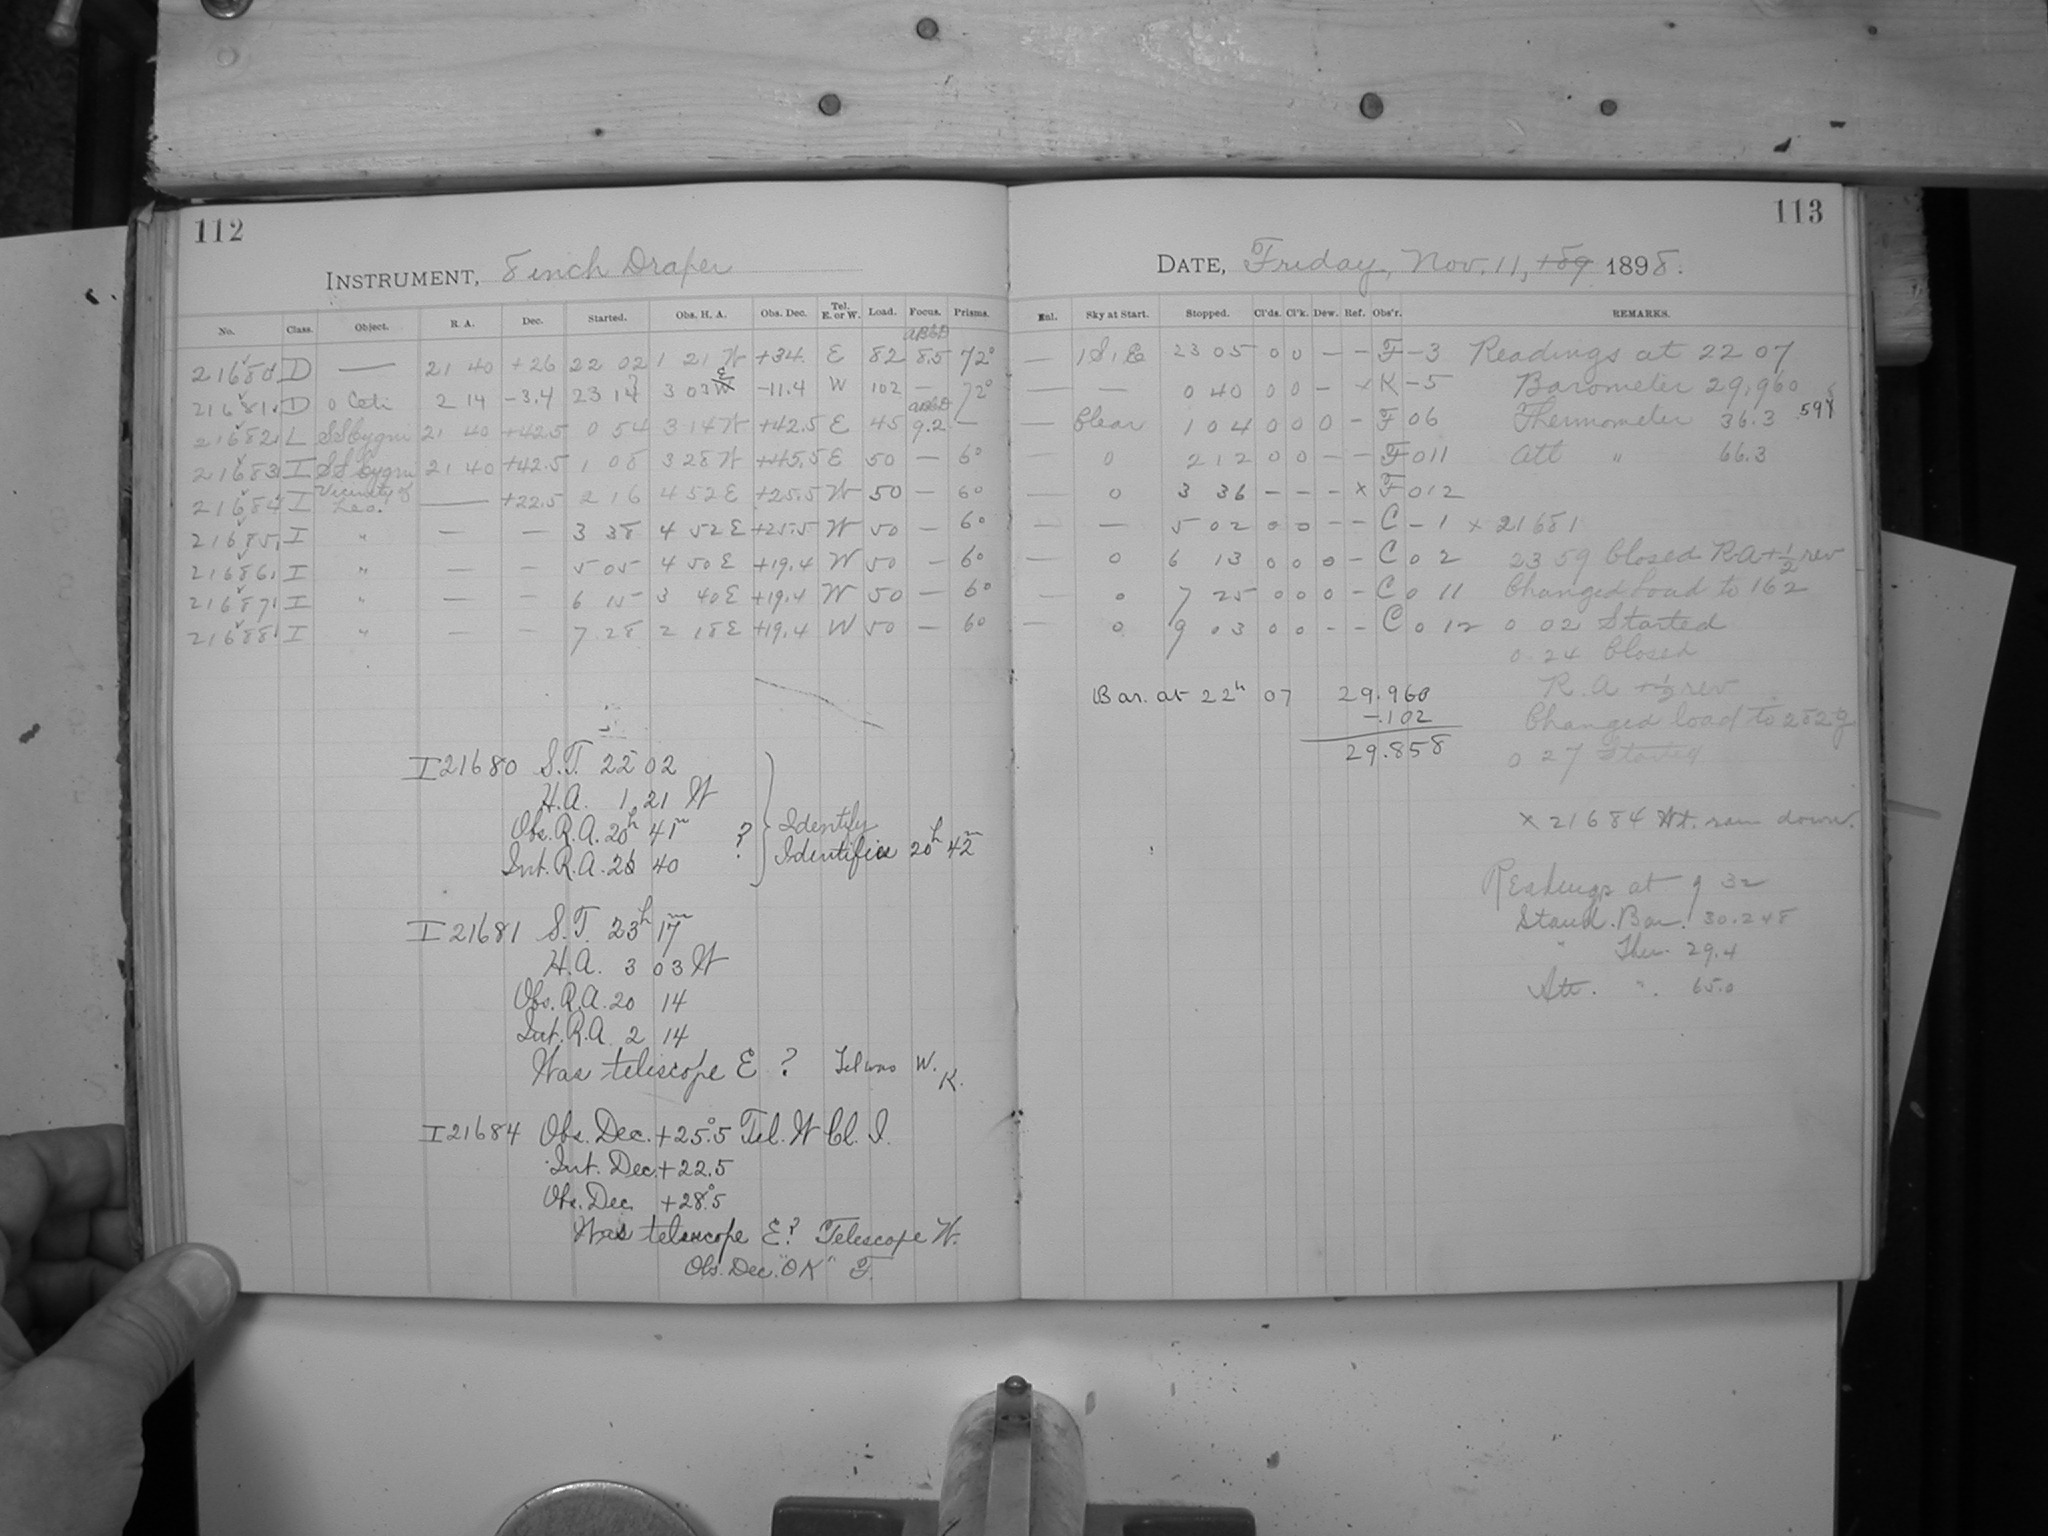 112
INSTRUMENT, 8 inch Draper
No. Class. Object. R. A. Dec. Started. Obs. H. A. Obs. Dec. Tel. E. or W. Load. Focus. Prisms.
21680 D — 21 40 +26 22 02 1 21 W +34. E 82 8.5 72°
21681 D o Ceti 2 14 -3.4 23 17 3 03 W E -11.4 W 102 — 72°
21682 L SS Cygni 21 40 +42.5 0 54 3 14 W +42.5 E 45 9.2 —
21683 I SS Cygni 21 40 +42.5 1 08 3 28 W +45.5 E 50 — 6°
21684 I Vicinity of Leo. — +22.5 2 16 4 52 E +25.5 W 50 — 60
21685 I " — — 3 38 4 52 E +25.5 W 50 — 60
21686 I " — — 5 05 4 50 E +19.4 W 50 — 60
21687 I " — — 6 15 3 40 E +19.4 W 50 — 60
21688 I " — — 7 28 2 18 E +19.4 W 50 — 60
I 21680 S.T. 22 02
H.A. 1 21 W
Obs. R.A. 20h 41m ?
Int. R.A. 21 40
Identify
Identifica 20h 42m
I 21681 S.T. 23h 17m
H.A. 3 03 W
Obs. R.A. 20 14
Int. R.A 2 14
Was telescope E? Tel was W. K.
I 21684 Obs. Dec. +25°.5 Tel. W Cl. I.
Int. Dec. +22.5
Obs. Dec. +28°.5
Was telescope E? Telescope W.
Obs. Dec. "OK" F.
113
DATE, Friday, Nov. 11, 189 1898.
Enl. Sky at Start. Stopped. Cl'ds. Cl'k. Dew. Ref. Obs'r. REMARKS.
— 1 S, E 23 05 0 0 — — F — 3 Readings at 22 07
— — 0 40 0 0 — x K — 5 Barometer 29,960
— Clear 1 04 0 0 0 — F 0 6 Thermometer 36.3
— 0 2 12 0 0 — — F 0 11 Att " 66.3
— 0 3 36 — — — x F 0 12
— — 5 02 0 0 — — C — 1 x 21681
— 0 6 13 0 0 0 — C 0 2 23 59 Closed R.A + 1/2 rev
— 0 7 25 0 0 0 — C 0 11 Changed load to 162
— 0 9 03 0 0 — — C 0 12 0 02 Started
0 24 Closed
R.A + 1/2 rev
Changed load to 282 g
0 27 Started
Bar. at 22h 07 29.960
-.102
29.858
x 21684 Wt. ran down.
Readings at 9 32
Stand. Bar. 30.248
" Ther. 29.4
Att. " 65.0